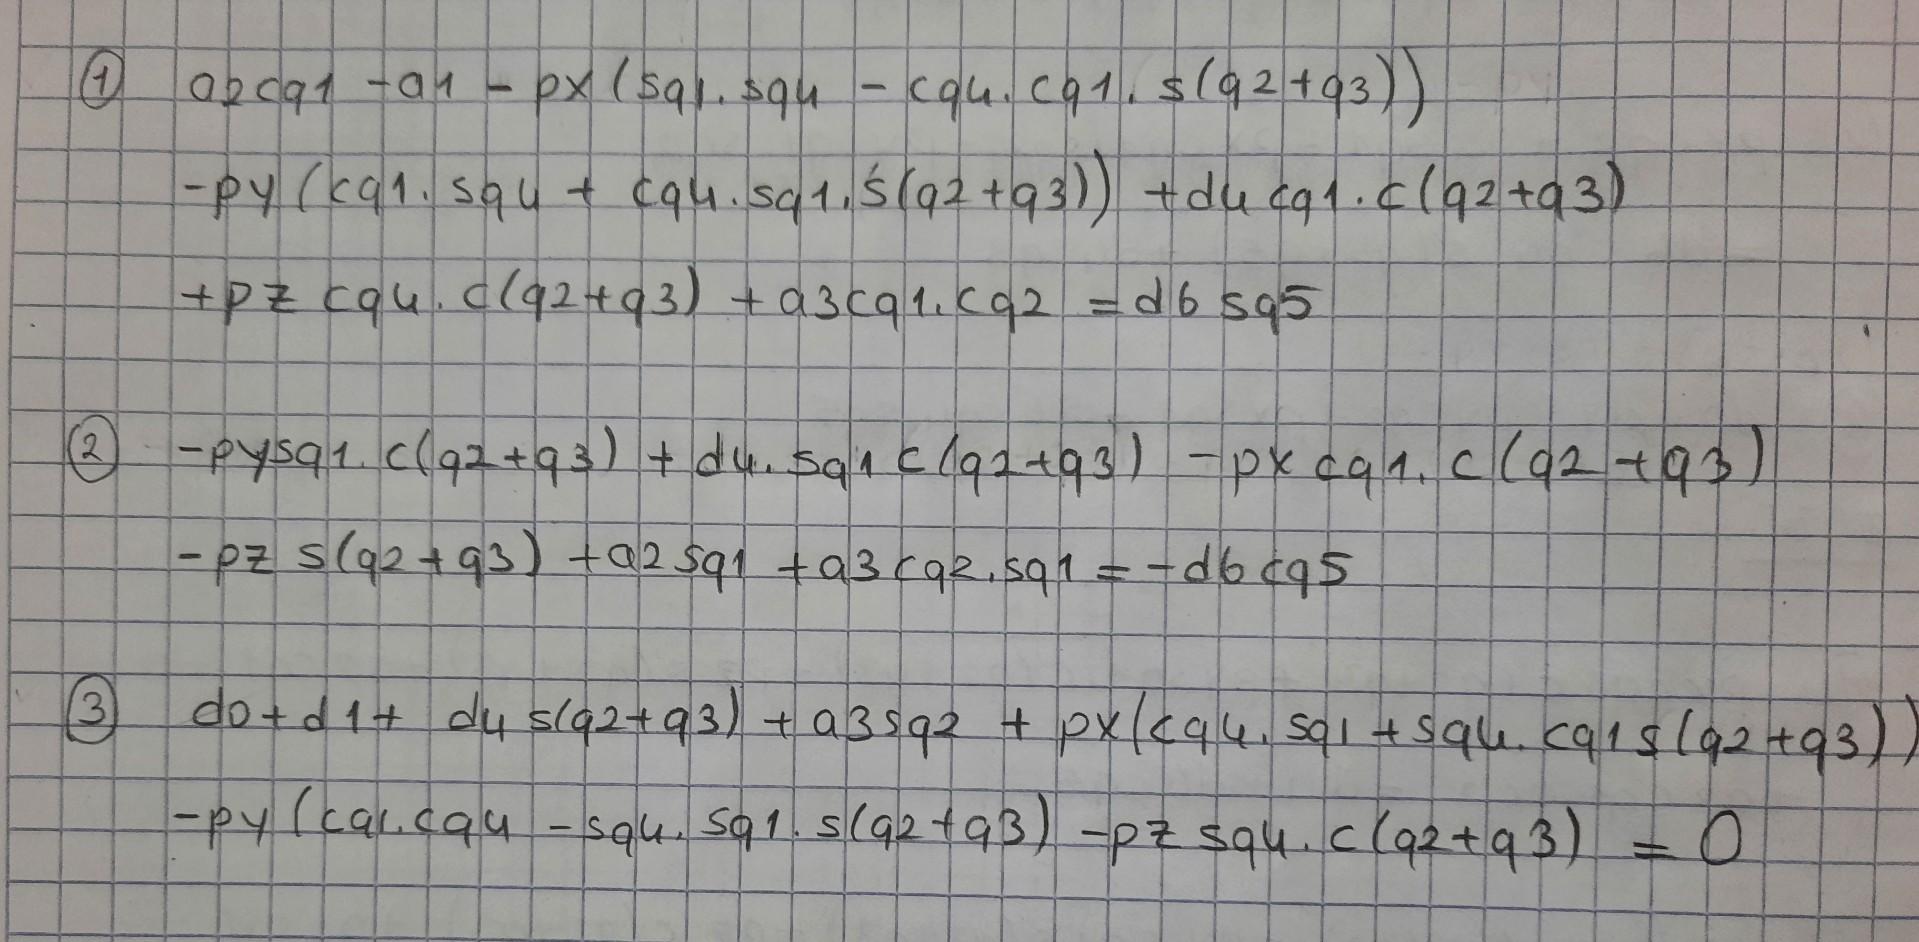 ① a2cq1 - a1 - px(sq1.sq4 - cq4.cq1.s(q2+q3))
-py(cq1.sq4 + cq4.sq1.s(q2+q3)) +d4cq1.c(q2+q3)
+pz cq4.c(q2+q3) + a3cq1.cq2 = d6 sq5
② -pysq1.c(q2+q3) + d4.sq1c(q2+q3) -px cq1.c(q2+q3)
-pz s(q2+q3) +a2sq1 +a3cq2.sq1 = -d6cq5
③ d0+d1+ d4s(q2+q3) + a3sq2 + px(cq4.sq1+sq4.cq1s(q2+q3))
-py(cq1.cq4 -sq4.sq1.s(q2+q3) -pz sq4.c(q2+q3) = 0